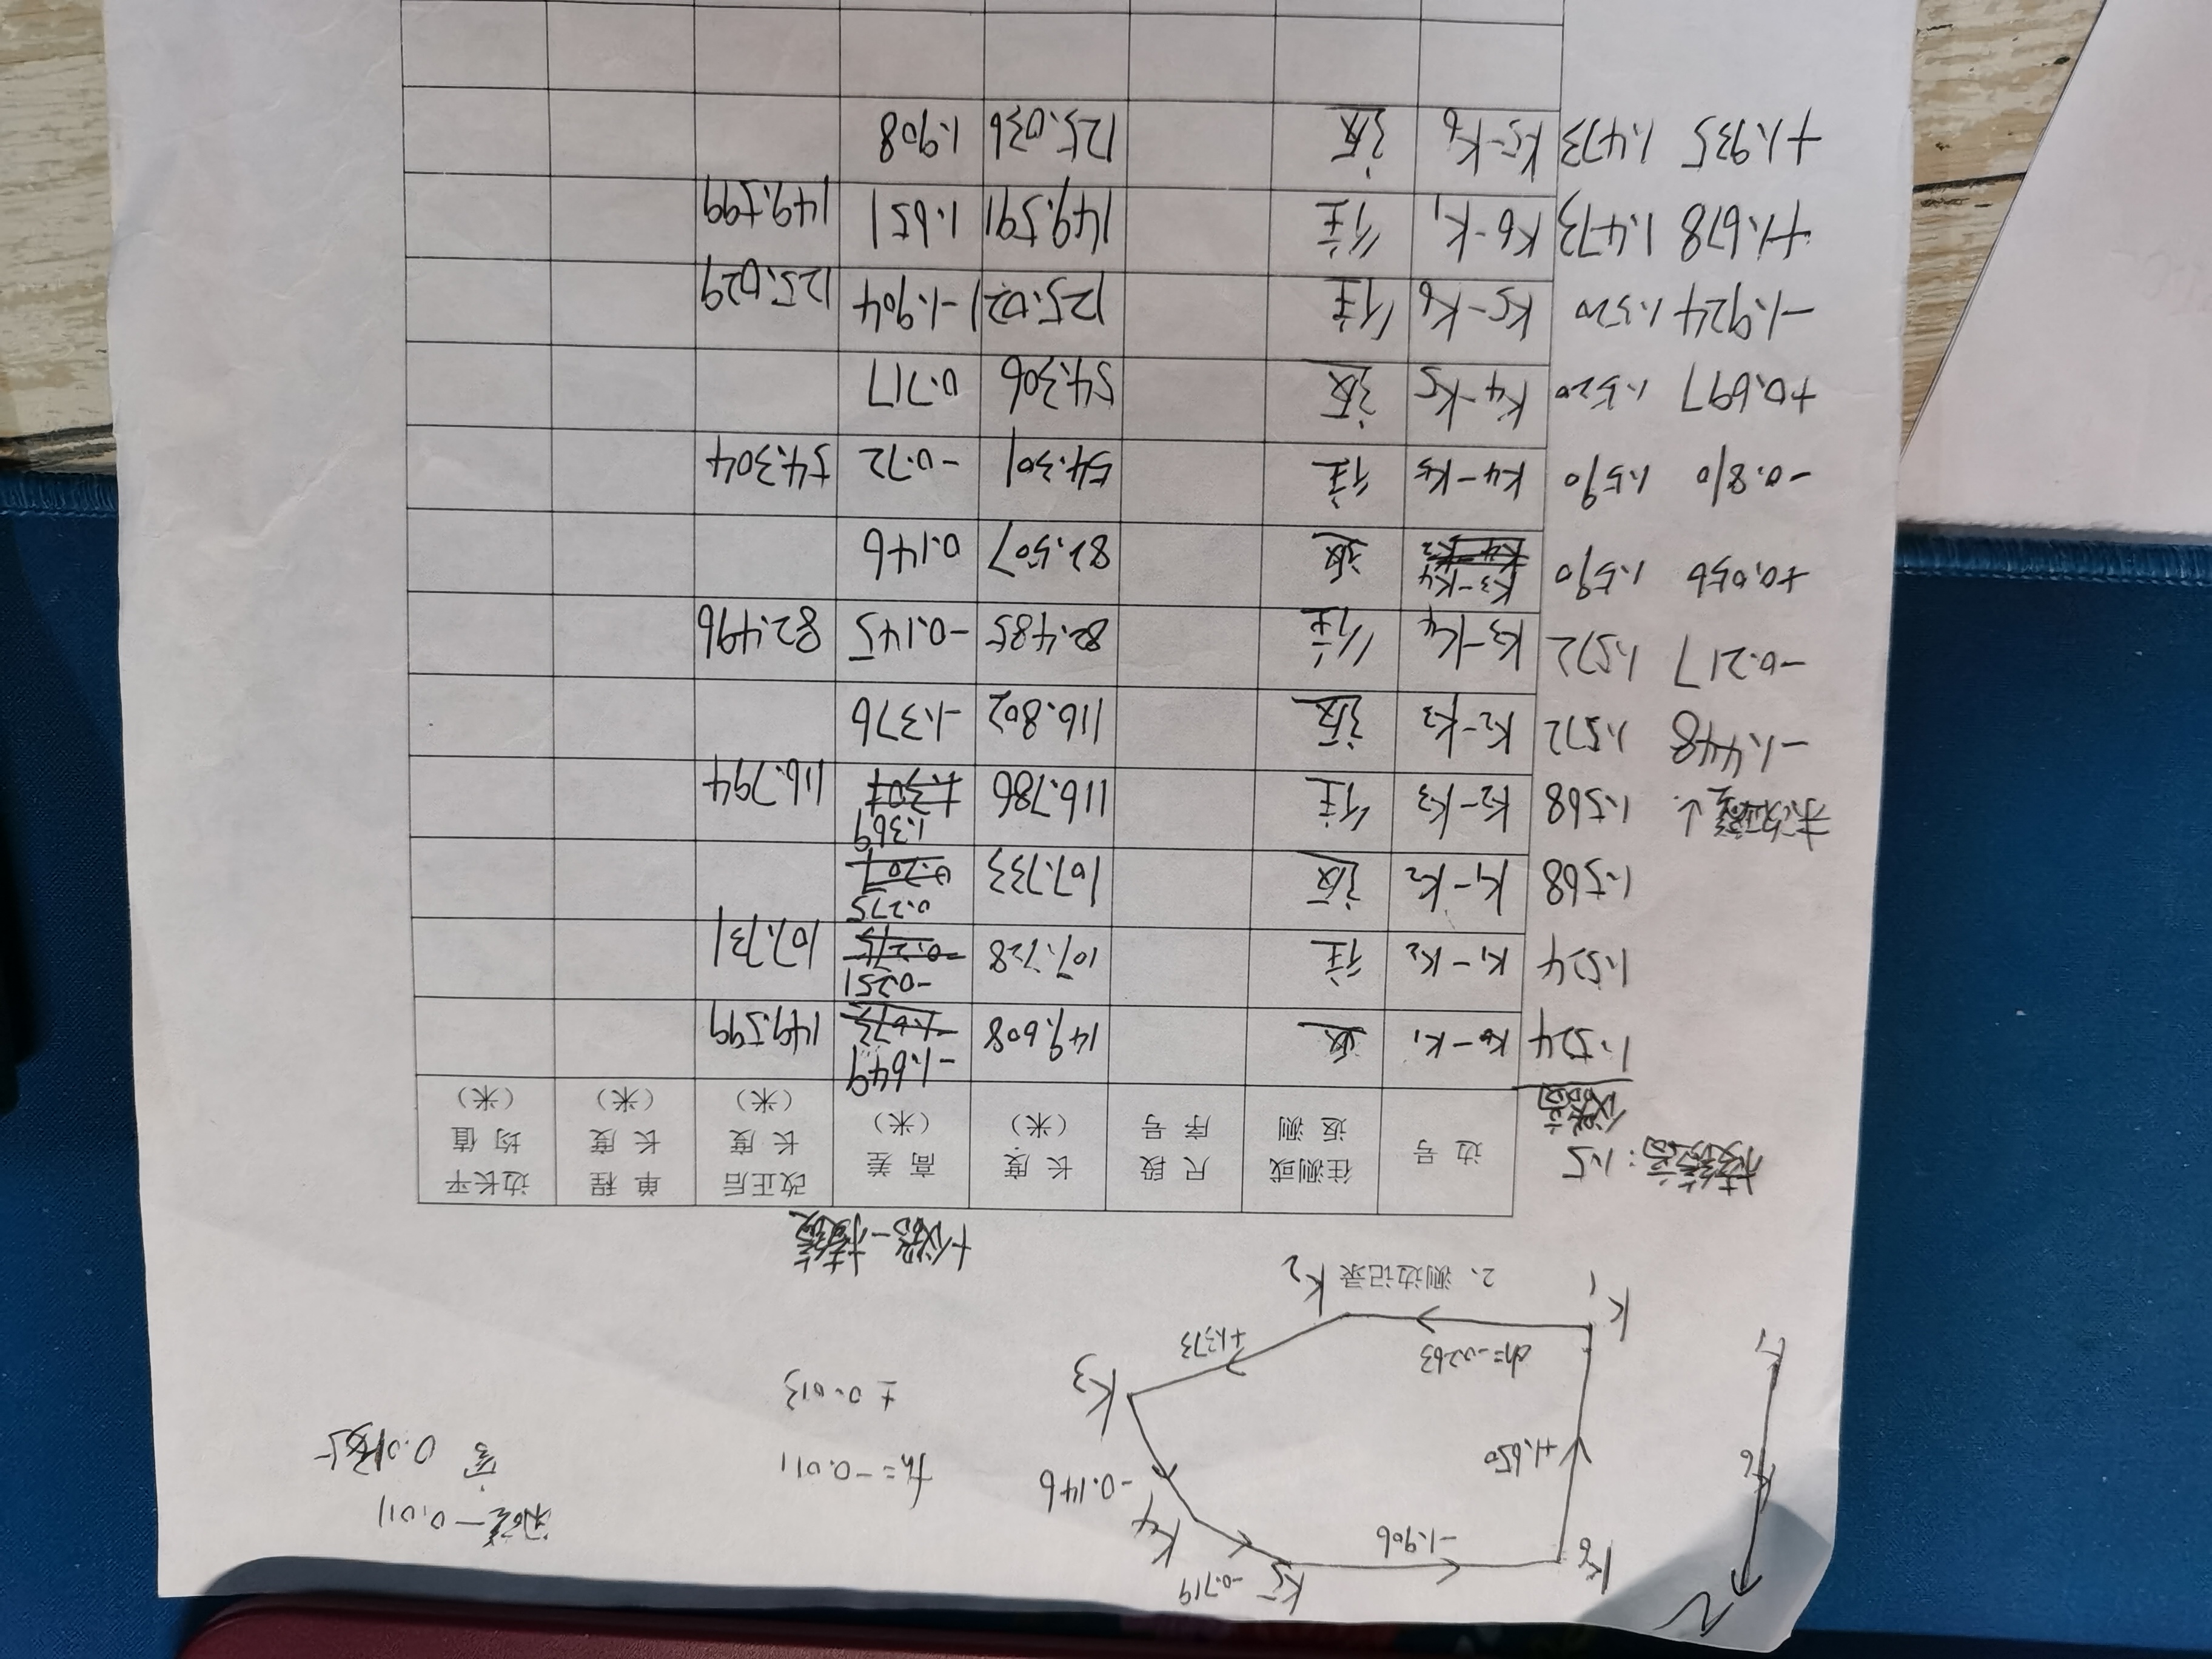 N
K6
K1
K6
K5 -0.719
-1.906
K4
-0.146
+1.650
K3
dh=-0.263
+1.373
K1
K2
fh=-0.011
±0.013
闭差-0.011
2、测边记录
+仪器-棱镜
棱镜高: 1.5
仪器高
边号 往测或返测 尺段序号 长度（米） 高差（米） 改正后长度（米） 单程长度（米） 边长平均值（米）
-1.649
1.524 K6-K1 返 149.608 -1.673 149.599
-0.251
1.524 K1-K2 往 107.728 -0.275 107.731
0.275
1.568 K1-K2 返 107.733 0.207
1.369
1.568 K2-K3 往 116.786 1.301 116.794
-1.448 1.572 K2-K3 返 116.802 -1.376
-0.217 1.572 K3-K4 往 82.485 -0.145 82.496
K3-K4
+0.056 1.590 返 82.507 0.146
-0.810 1.590 K4-K5 往 54.301 -0.72 54.304
+0.697 1.520 K4-K5 返 54.306 0.717
-1.924 1.520 K5-K6 往 125.021 -1.904 125.029
+1.678 1.473 K6-K1 往 149.591 1.651 149.599
+1.935 1.473 K5-K6 返 125.036 1.908